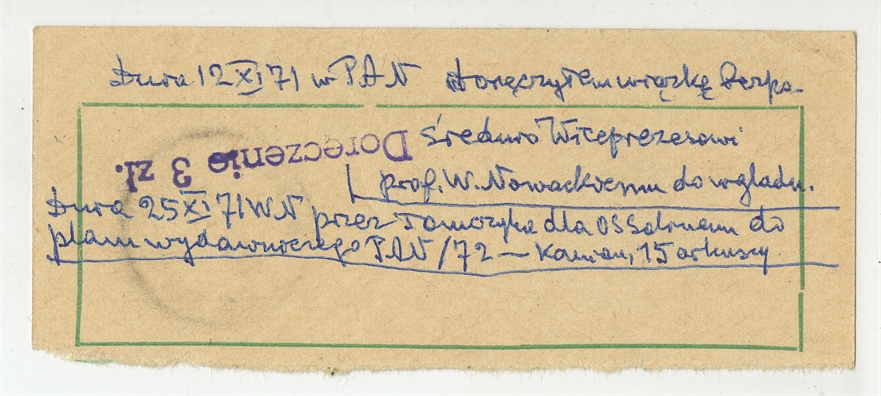 Dnia 12 XI 71 w PAN doręczyłem wiązkę bezpo-
średnio Wiceprezesowi
Doręczenie 3 zł.
prof. W. Nowackiemu do wglądu.
Dnia 25 XI 71 WN przez Tomczyka dla Ossolineum do
planu wydawniczego PAN/72 — 15 arkuszy